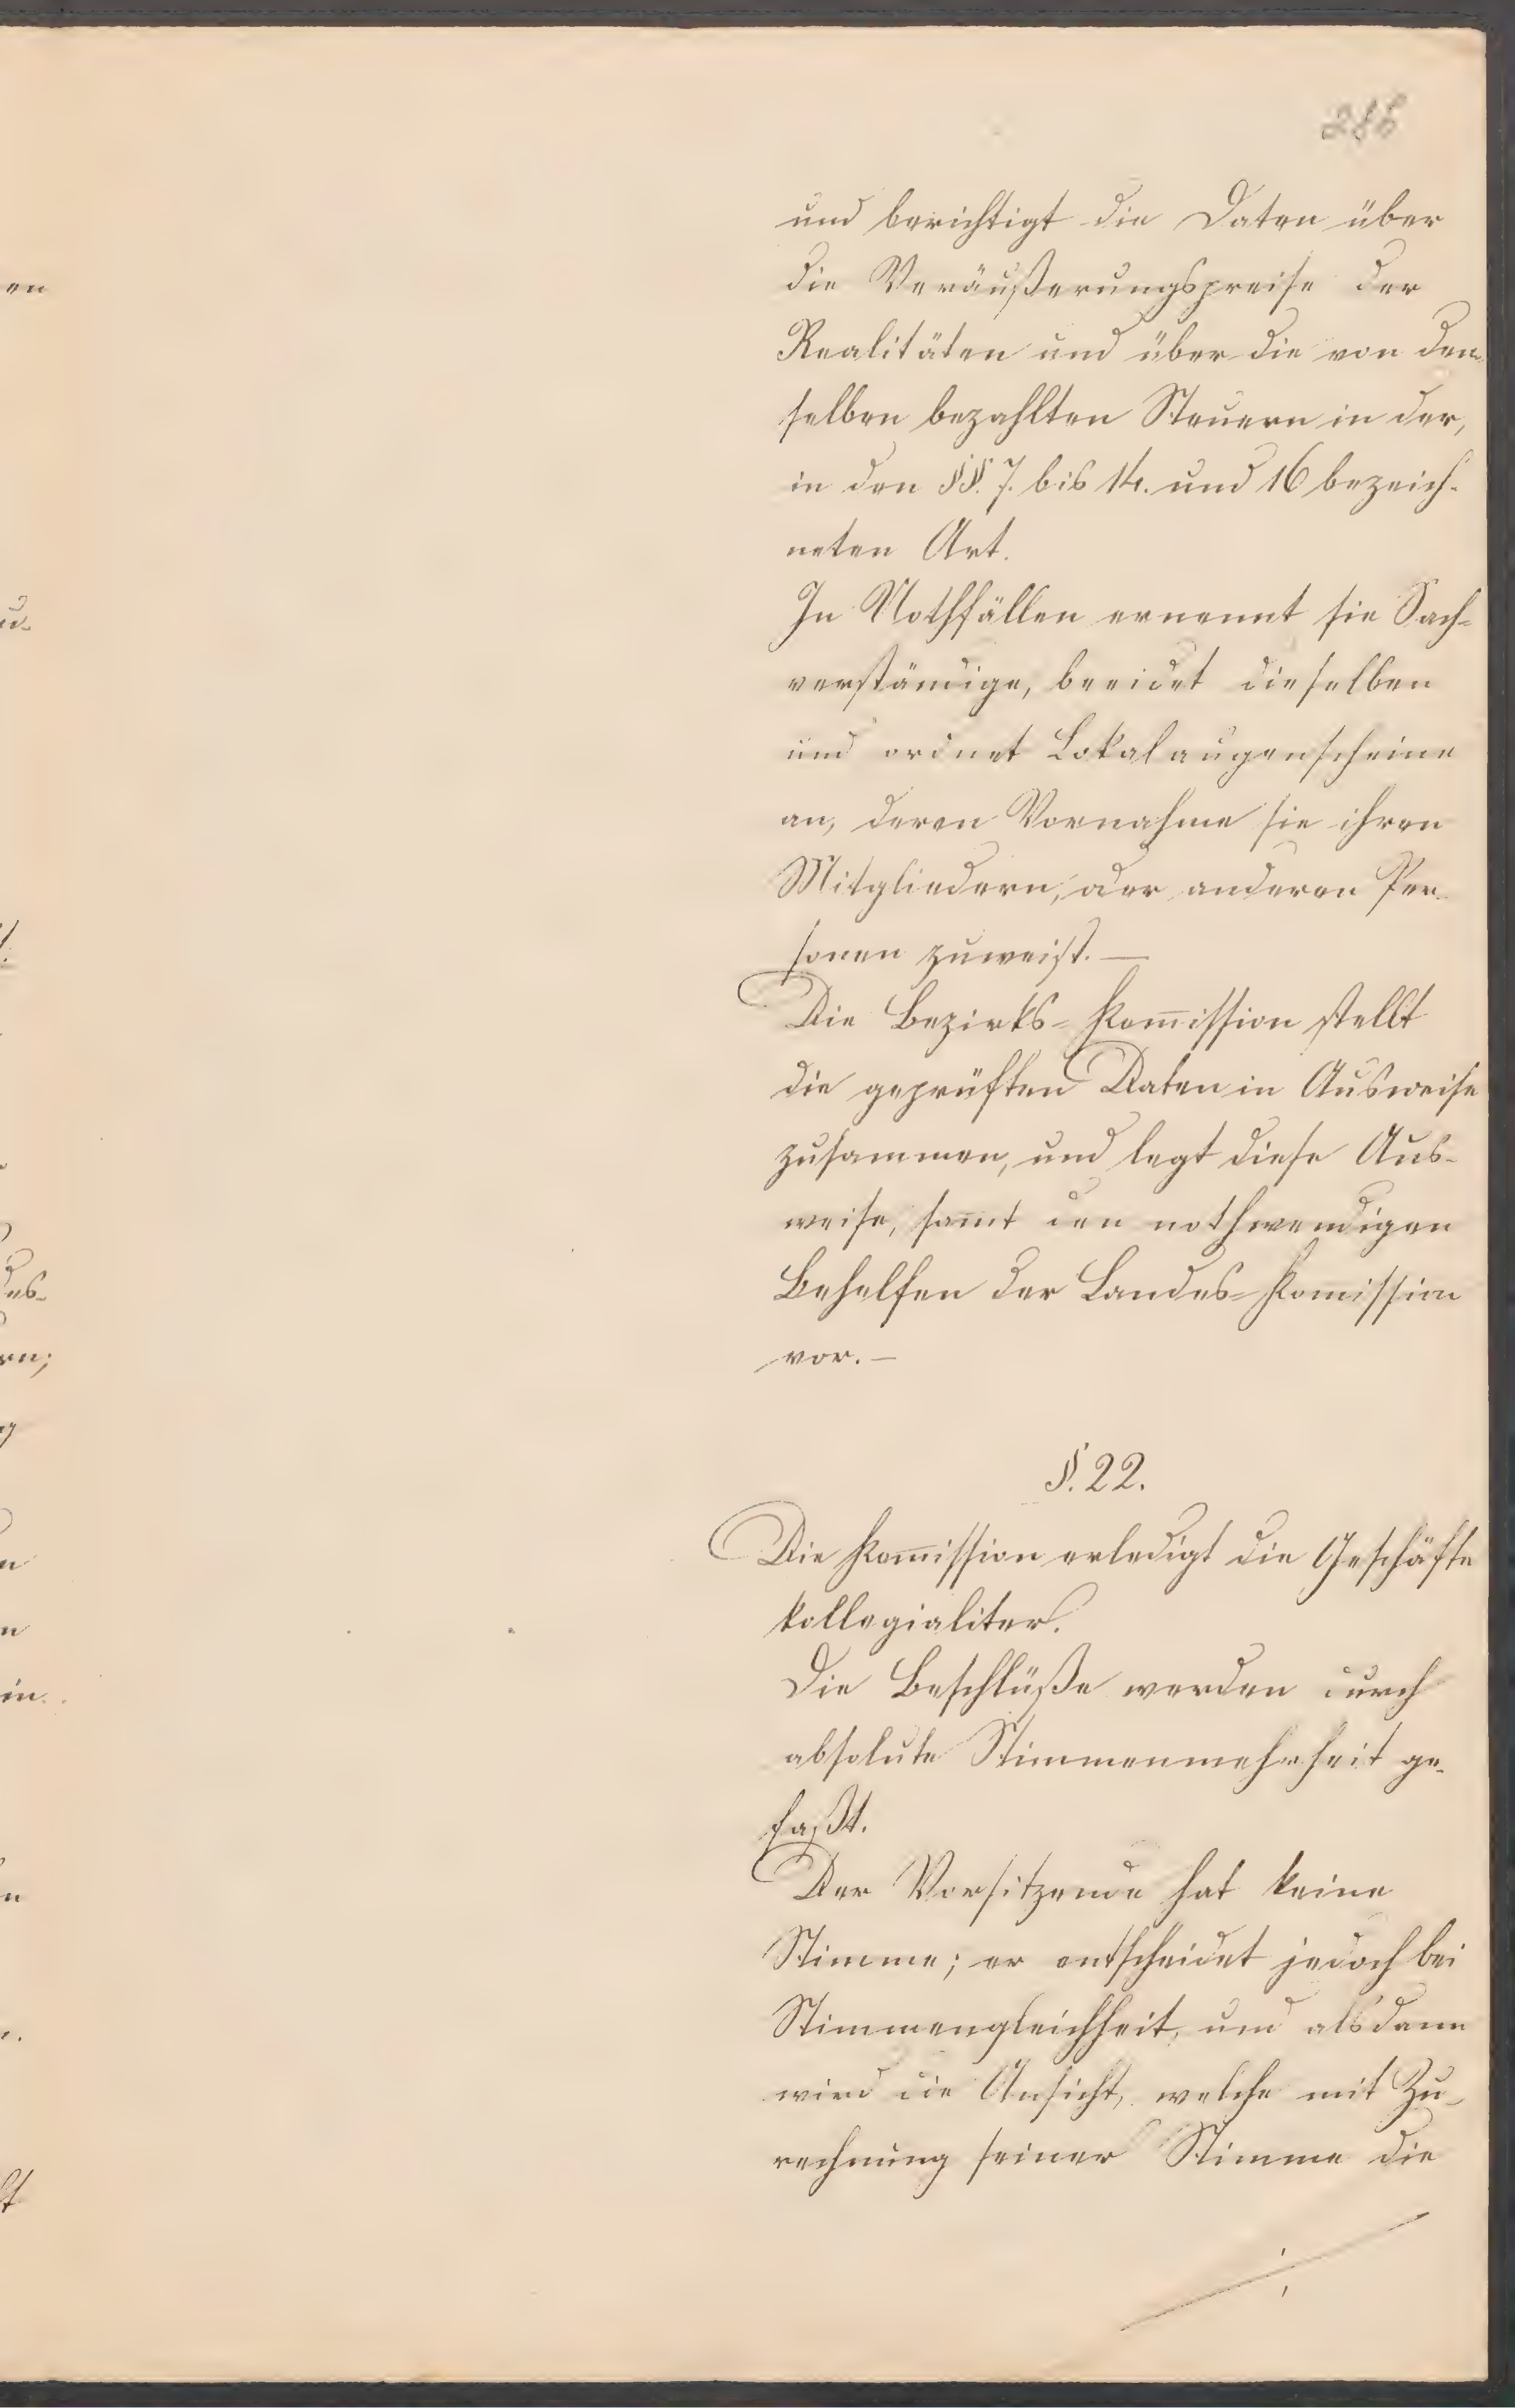 286
und berichtigt die Daten über
die Veräußerungspreise der
Realitäten und über die von den
selben bezahlten Steuern in der,
in den §§. 7. bis 14. und 16 bezeich-
neten Art.
In Nothfällen ernennt sie Sach-
verständige, beeidet dieselben
und ordnet Lokalaugenscheine
an, deren Vornahme sie ihren
Mitgliedern, oder anderen Per-
sonen zuweist. —
Die Bezirks-Kom̅ission stellt
die geprüften Daten in Ausweise
zusammen, und legt diese Aus-
weise, sam̅t den nothwendigen
Behelfen der Landes-Kom̅ission
vor. —
§. 22.
Die Kom̅ission erledigt die Geschäfte
kollegialiter.
Die Beschlüße werden durch
absolute Stimmenmehrheit ge-
faßt.
Der Vorsitzende hat keine
Stimme; er entscheidet jedoch bei
Stimmengleichheit, und alsdann
wird die Ansicht, welche mit Zu-
rechnung seiner Stimme die